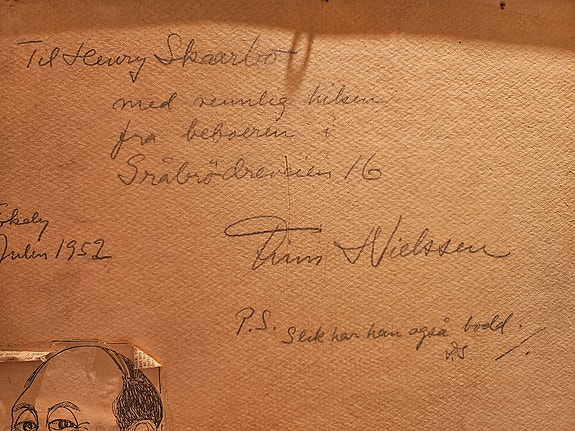 Til Henry Skaarbo
med vennlig hilsen
fra beboeren i
Gråbrödreveien 16
Ekely
Julen 1952
Finn Nielssen
P.S. Slik har han også bodd.